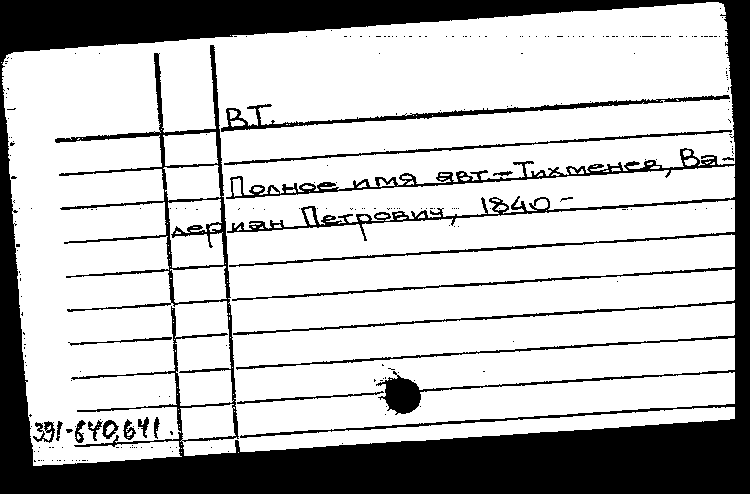 В.Т.
Полное имя авт.=Тихменев, Ва-
лериан Петрович, 1840-
391-640,641.